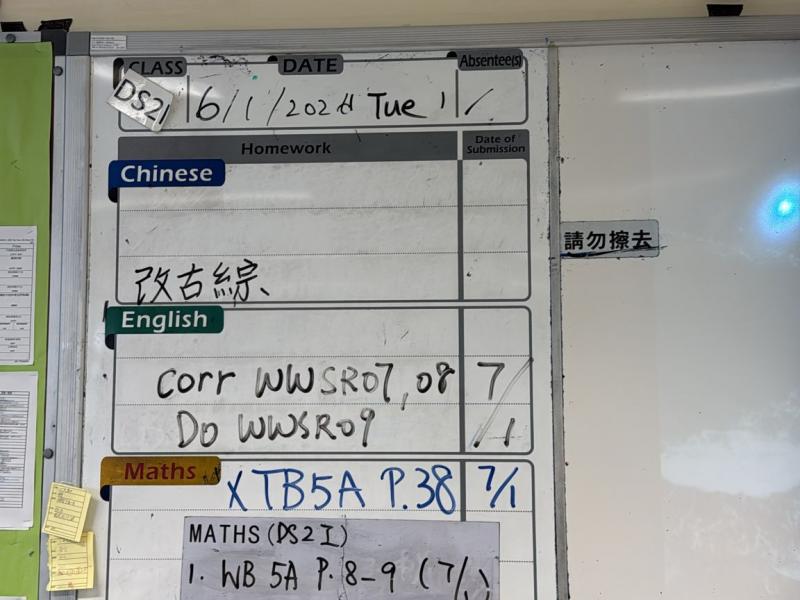 CLASS DATE Absentee(s)
DS2I 6/1/202 Tue 1 /
Homework Date of Submission
Chinese
改古綜
請勿擦去
English
Corr WWSR07,08 7/1
Do WWSR09
Maths
X TB5A P.38 7/1
MATHS (DS2I)
1. WB 5A P. 8-9 (7/1)